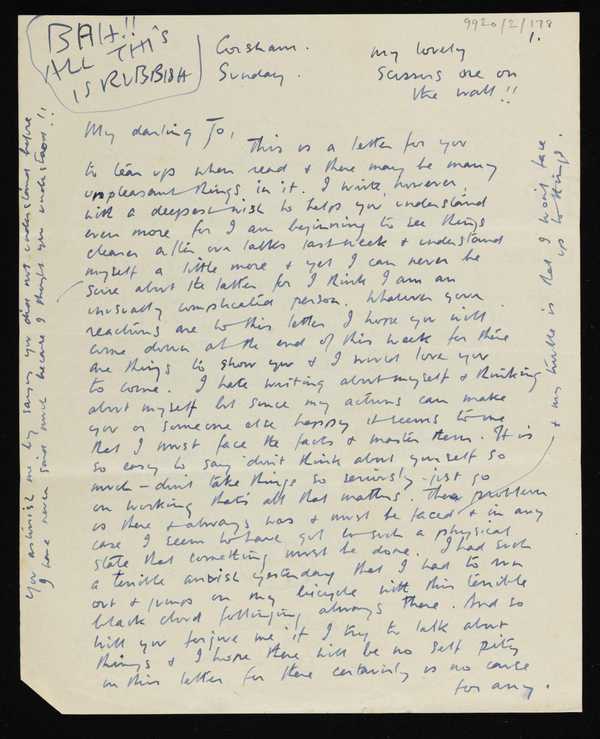 9920/2/178
1.
BAH!!
ALL THIS
IS RUBBISH
Corsham.
Sunday.
my lovely
scissors are on
the wall!!
My darling Jo,
This is a letter for you
to tear up when read & there may be many
unpleasant things in it. I write, however,
with a deepest wish to help you understand
even more for I am beginning to see things
clearer after our talks last week & understand
myself a little more & yet I can never be
sure about the latter for I think I am an
unusually complicated person. Whatever your
reactions are to this letter I hope you will
come down at the end of this week for there
are things to show you & I would love you
to come. I hate writing about myself & thinking
about myself but since my actions can make
you or someone else happy it seems to me
that I must face the facts & master them. It is
so easy to say 'don't think about yourself so
much – don't take things so seriously – just go
on working that's all that matters'. The problem
is there & always was & must be faced & in any
case I seem to have got to such a physical
state that something must be done. I had such
a terrible anguish yesterday that I had to run
out & jump on my bicycle with this terrible
black cloud following always there. And so
will you forgive me if I try to talk about
things & I hope there will be no self pity
in this letter for there certainly is no cause
for any.
You astonish me by saying you did not understand before
I have never said much because I thought you understood!!
& my trouble is that I won't face
up to things.